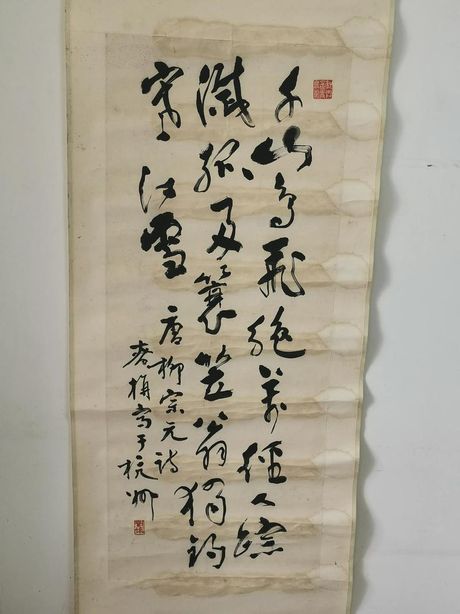 千山鳥飛絶萬徑人蹤
滅孤舟蓑笠翁獨釣
寒江雪
唐柳宗元詩
寫于杭州